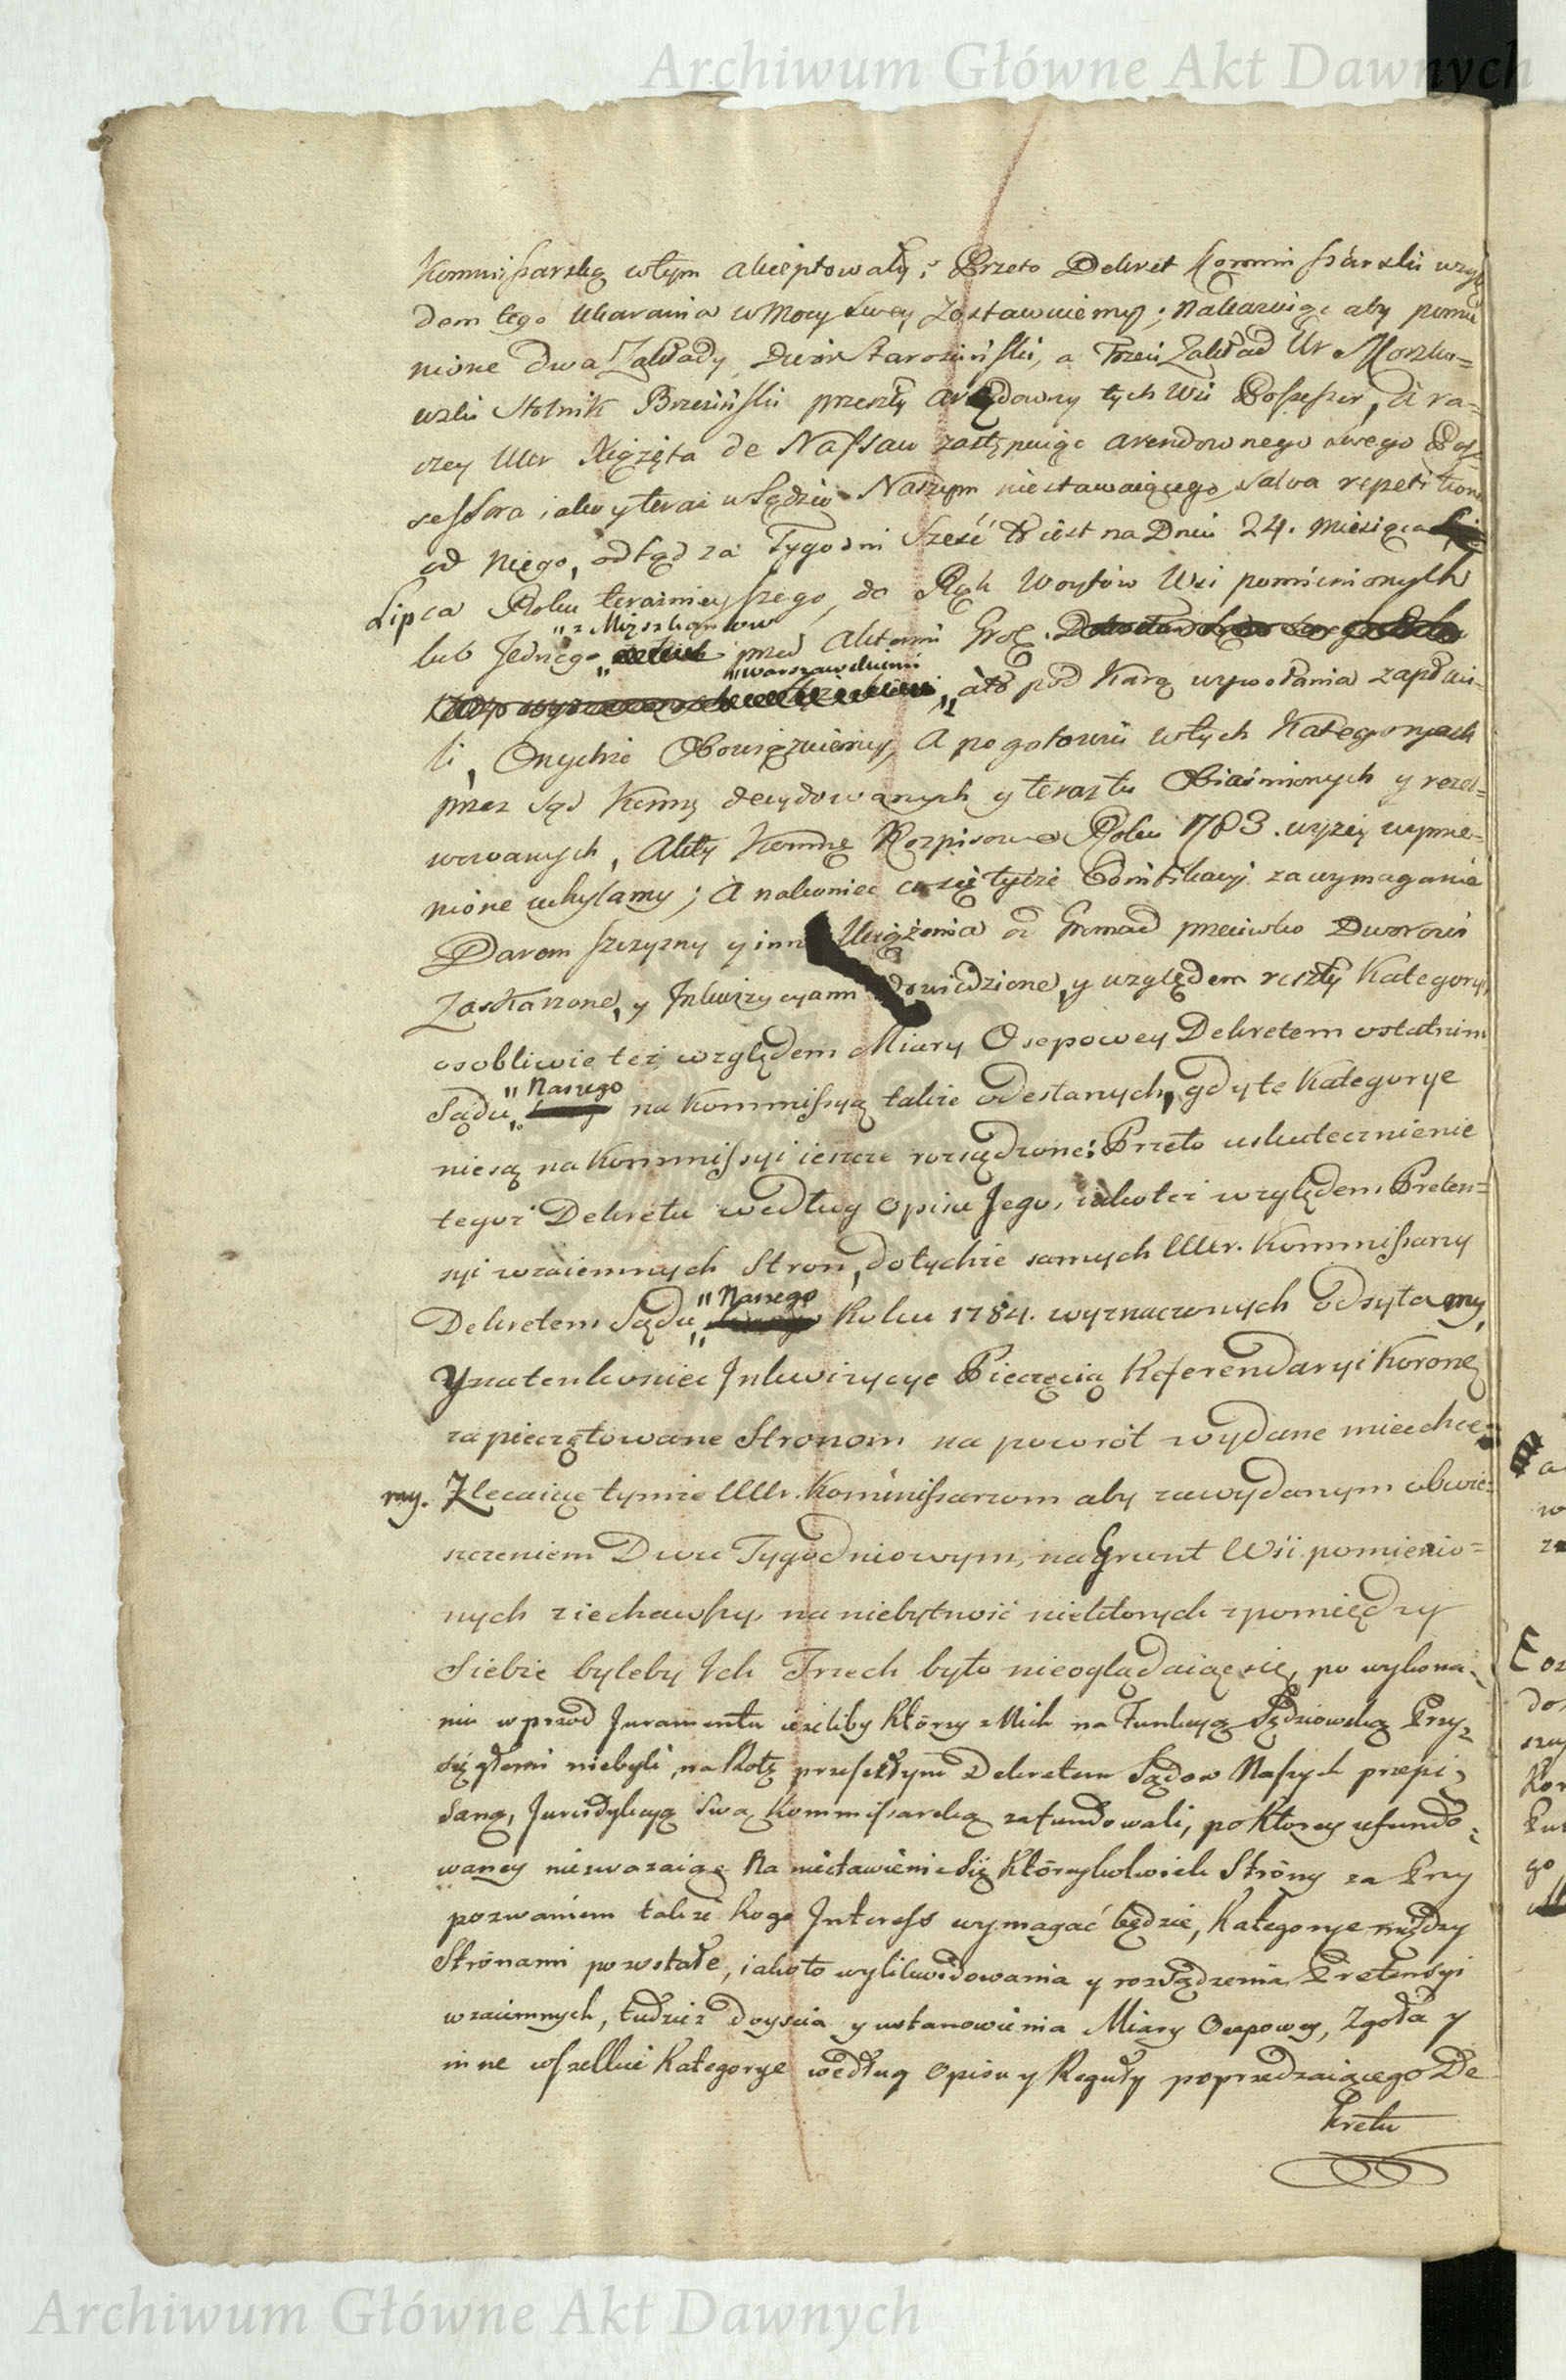 Archiwum Główne Akt Dawnych
Kommissarską wtym akceptowały; Przeto Dekret Kommissarski wzglę
dem tego Ukarania w Mocy swey zostawuiemy; Nakazuiąc aby pomie
nione dwa Zakłady, Dwór Starościński, a Trzeci Zakład Ur Moszko=
wski Stolnik Brzeziński przeszły arędowny tych Wsi Possessor, a ra=
czey Uur Xiążęta de Nassau zastępuiąc arendownego swego Pos=
sessora iako y teraz w Sądzie Naszym niestawaiącego, salva repetitione
od niego, odtąd za Tygodni sześć to iest na Dniu 24. Miesiąca
Lipca Roku teraźnieyszego, do Rąk Woytów Wsi pomienionych
"z Mieszkańców
lub Jednego przed Aktami Grod.
"Warszawskiemi
ato pod Karą wywołania zapłaci=
li, Onychże Obowiązuiemy, A pogotowiu wtych Kategoryach
przez Sąd Kommis decydowanych y teraz tu Obiaśnionych y rezol=
wowanych, Akty Kommis Rozpisowe Roku 1783. wyżey wymie=
nione uchylamy; A nakoniec co się tycze Bonifikacyi za wymaganie
Darem szczyzny y inne Uciążenia od Gromad przeciwko Dworowi
Zaskarzone, y Inkwizycyami dowiedzione, y względem reszty Kategoryi,
osobliwie też względem Miary Osepowey Dekretem ostatnim
"Naszego
Sądu na Kommissyą także odesłanych, gdy te Kategorye
nie są na Kommissyi ieszcze rozsądzone; Przeto uskutecznienie
tegoż Dekretu według opisu Jego, iakoteż względem Preten=
syi wzaiemnych Stron, do tychże samych Uur. Kommissarzy
"Naszego
Dekretem Sądu Roku 1784. wyznaczonych odsyłamy,
Y na ten koniec Inkwizycye Pieczęcią Referendaryi Koronney
zapieczętowane Stronom na powrót wydane mieć chce=
my. Zlecaiąc tymże Uur. Kommissarzom aby za wydanym obwie=
szczeniem Dwu Tygodniowym, na Grunt Wsi pomienio=
nych ziechawszy, na niebytność niektórych z pomiędzy
Siebie byleby Ich Trzech było nieoglądaiąc się, po wykona=
niu wprzód Juramentu ieżeliby którzy z Nich na Funkcyą Sędziowską Przy=
sięgłemi niebyli, na Rotę przeszłym Dekretem Sądow Naszych przepi=
saną, Jurisdykcyą swą Kommissarską zafundowali, po którey ufundo=
waney niezważaiąc na niestawienie się któreykolwiek Strony za Przy
pozwaniem także kogo Interess wymagać będzie, Kategorye między
Stronami pozostałe, iakoto wylikwidowania y rozsądzenia Pretensyi
wzaiemnych, tudzież doyścia y ustanowienia Miary Osepowey, Zgoła y
inne wszelkie Kategorye według Opisu y Reguły poprzedzaiącego De
kretu
Archiwum Główne Akt Dawnych